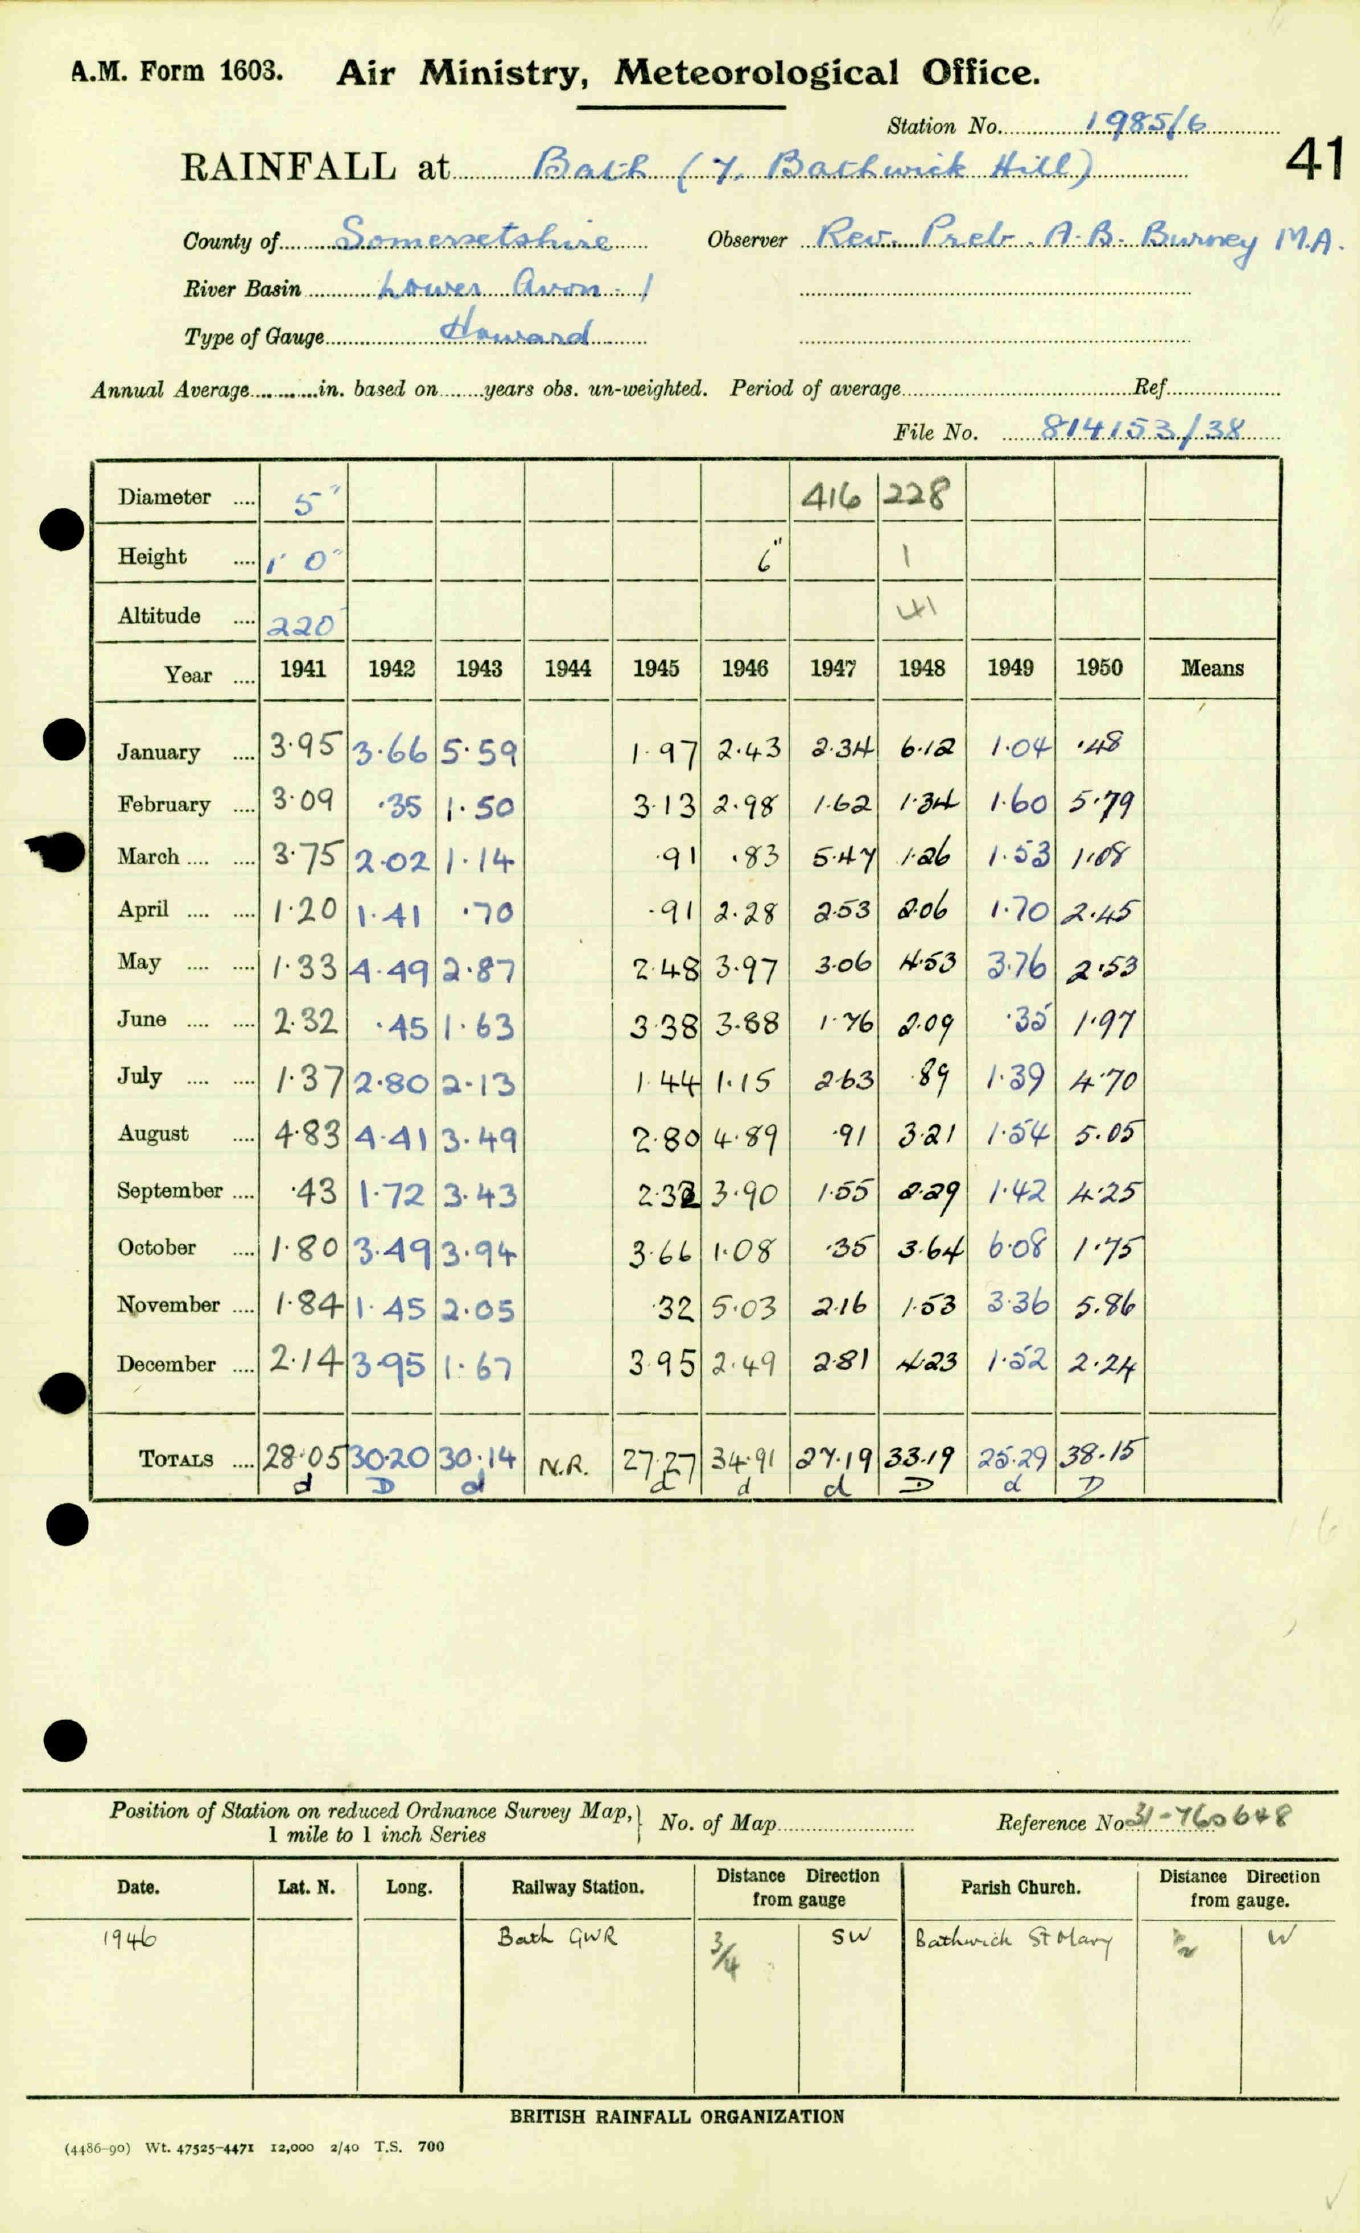 A.M. Form 1603. Air Ministry, Meteorological Office.
Station No. 1985/6
41
RAINFALL at Bath (7. Bathwick Hill)
County of Somersetshire Observer Rev. Preb. A.B. Burney M.A.
River Basin Lower Avon - 1
Type of Gauge Howard
Annual Average in. based on years obs. un-weighted. Period of average Ref.
File No. 814153/38
Diameter 5" 416 228
Height 1' 0" 6" 1
Altitude 220 41
Year 1941 1942 1943 1944 1945 1946 1947 1948 1949 1950 Means
January 3.95 3.66 5.59 1.97 2.43 2.34 6.12 1.04 .48
February 3.09 .35 1.50 3.13 2.98 1.62 1.34 1.60 5.79
March 3.75 2.02 1.14 .91 .83 5.47 1.26 1.53 1.08
April 1.20 1.41 .70 .91 2.28 2.53 2.06 1.70 2.45
May 1.33 4.49 2.87 2.48 3.97 3.06 4.53 3.76 2.53
June 2.32 .45 1.63 3.38 3.88 1.76 2.09 .35 1.97
July 1.37 2.80 2.13 1.44 1.15 2.63 .89 1.39 4.70
August 4.83 4.41 3.49 2.80 4.89 .91 3.21 1.54 5.05
September .43 1.72 3.43 2.32 3.90 1.55 2.29 1.42 4.25
October 1.80 3.49 3.94 3.66 1.08 .35 3.64 6.08 1.75
November 1.84 1.45 2.05 .32 5.03 2.16 1.53 3.36 5.86
December 2.14 3.95 1.67 3.95 2.49 2.81 4.23 1.52 2.24
TOTALS 28.05 30.20 30.14 N.R. 27.27 34.91 27.19 33.19 25.29 38.15
d D d d d d D d D
Position of Station on reduced Ordnance Survey Map, 1 mile to 1 inch Series } No. of Map Reference No 31-760648
Date. Lat. N. Long. Railway Station. Distance Direction from gauge Parish Church. Distance Direction from gauge.
1946 Bath GWR 3/4 SW Bathwick St Mary 1/2 W
BRITISH RAINFALL ORGANIZATION
(4486-90) Wt. 47525-4471 12,000 2/40 T.S. 700